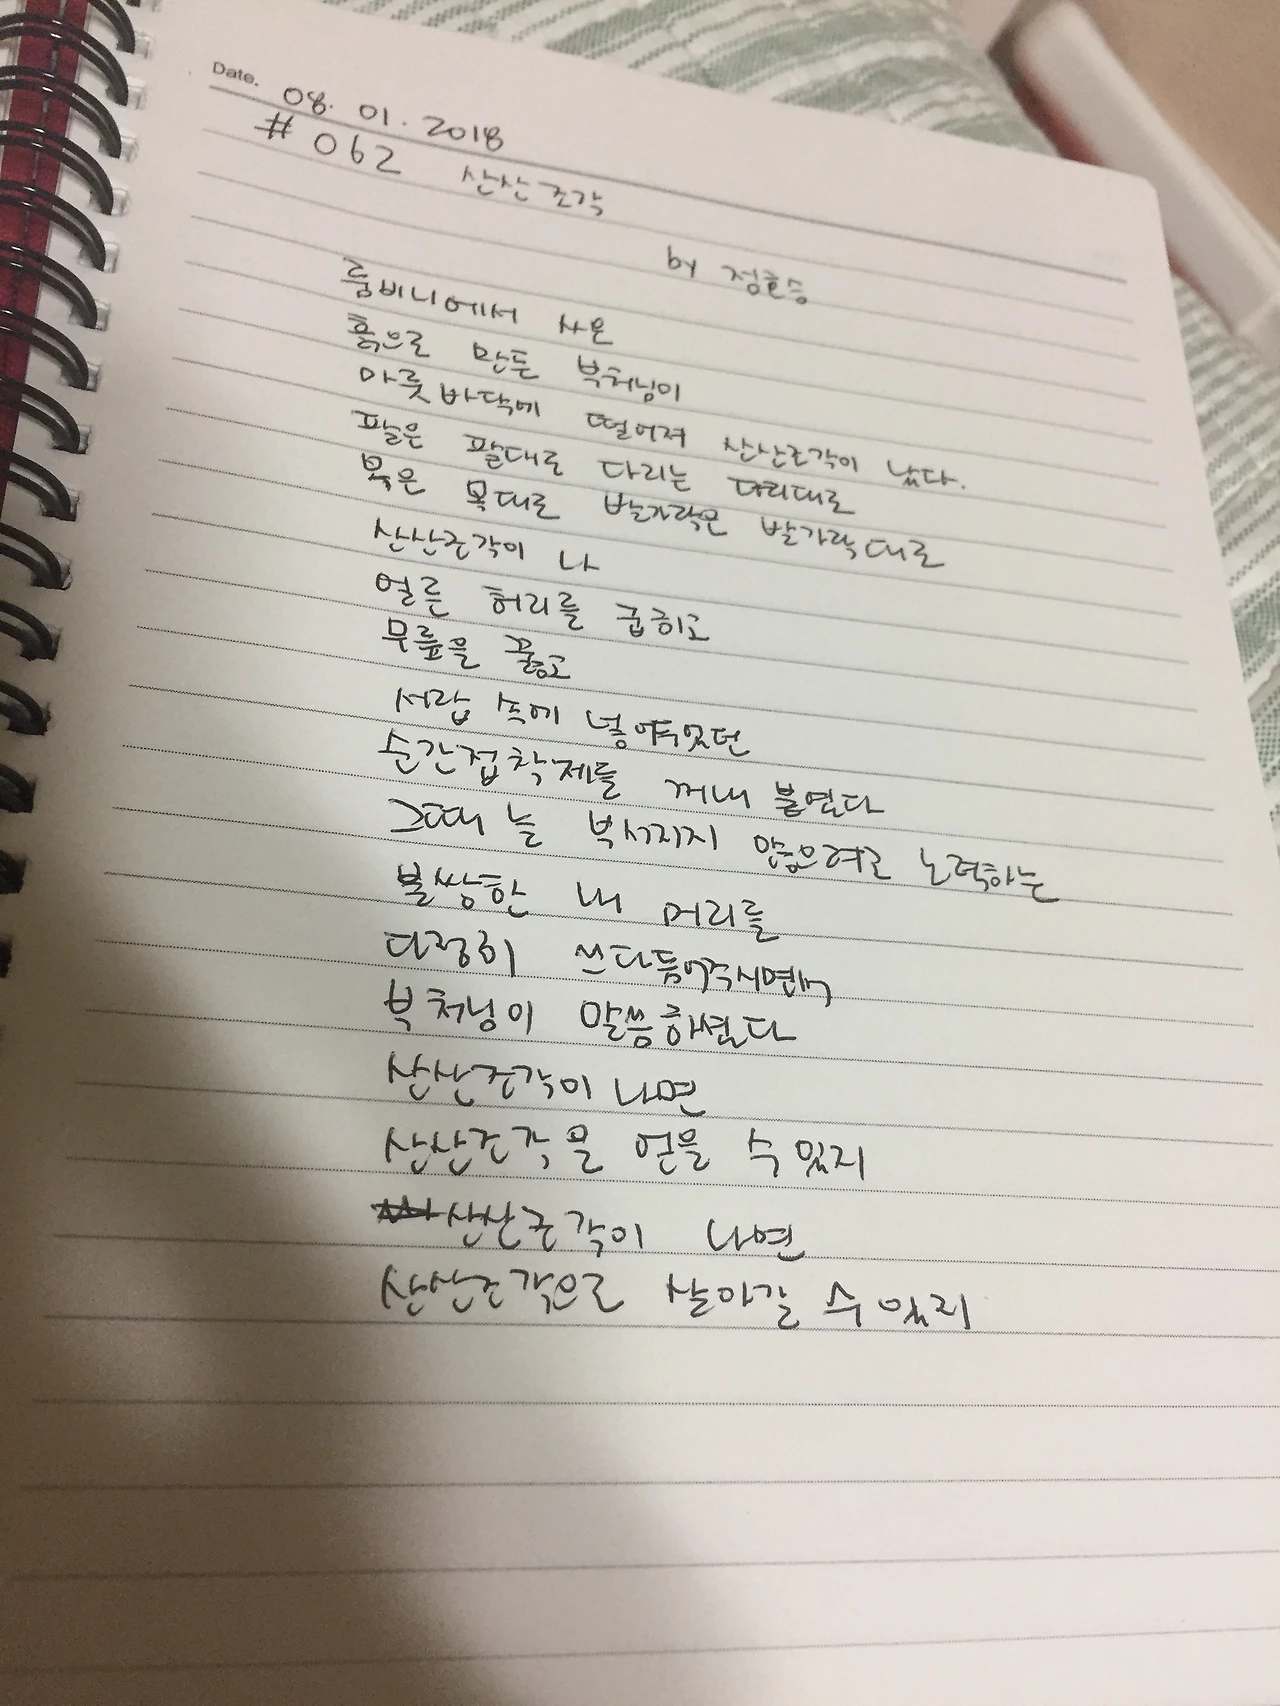 Date. 08. 01. 2018
#062 산산조각
by 정호승
룸비니에서 사온
흙으로 만든 부처님이
마룻바닥에 떨어져 산산조각이 났다.
팔은 팔대로 다리는 다리대로
목은 목대로 발가락은 발가락대로
산산조각이 나
얼른 허리를 굽히고
무릎을 꿇고
서랍 속에 넣어두었던
순간접착제를 꺼내 붙였다
그때 늘 부서지지 않으려고 노력하는
불쌍한 내 머리를
다정히 쓰다듬어주시면서
부처님이 말씀하셨다
산산조각이 나면
산산조각을 얻을 수 있지
산산조각이 나면
산산조각으로 살아갈 수 있지